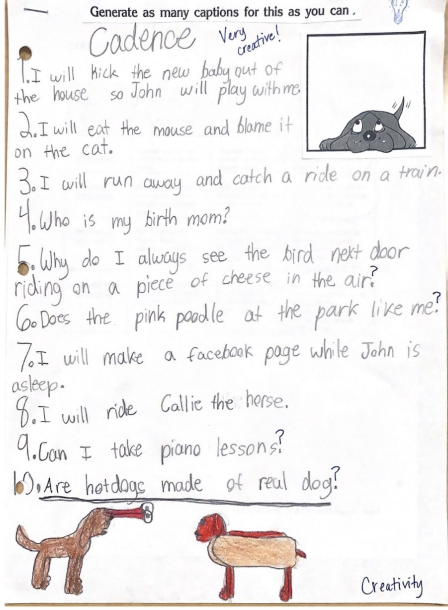 Generate as many captions for this as you can.
Cadence
Very
creative!
1. I will kick the new baby out of
the house so John will play with me.
2. I will eat the mouse and blame it
on the cat.
3. I will run away and catch a ride on a train.
4. Who is my birth mom?
5. Why do I always see the bird next door
riding on a piece of cheese in the air?
6. Does the pink poodle at the park like me?
7. I will make a facebook page while John is
asleep.
8. I will ride Callie the horse.
9. Can I take piano lessons?
10. Are hotdogs made of real dog?
Creativity